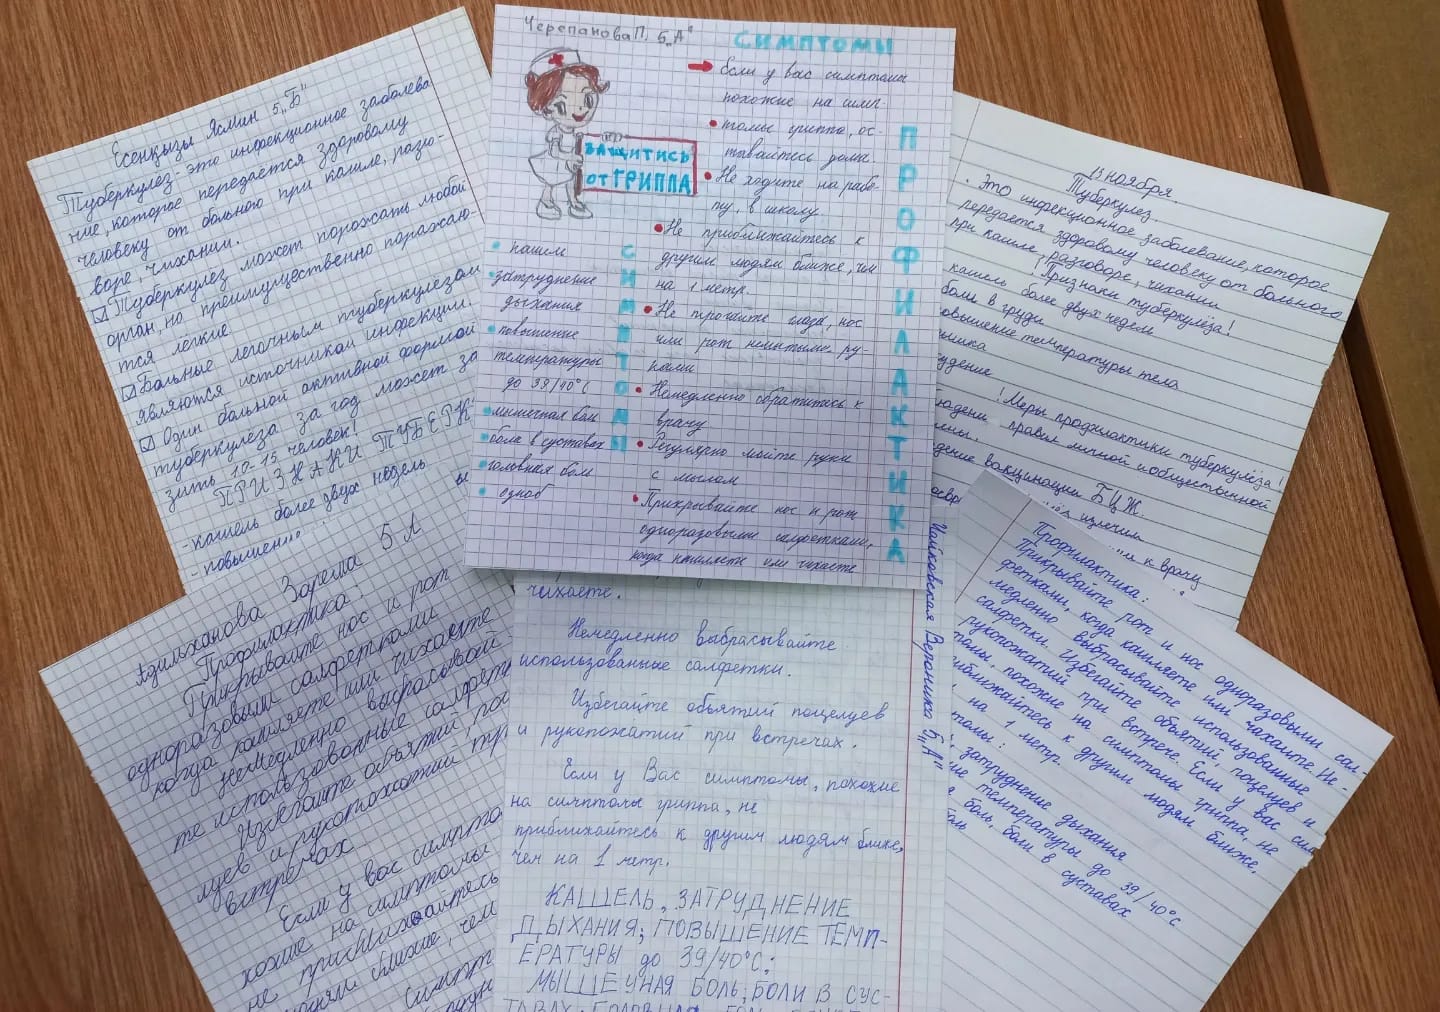 Есенқызы Ясмин 5„Б"
Туберкулез - это инфекционное заболева
ние, которое передается здоровому
человеку от больного при кашле, разго-
воре, чихании.
Туберкулез может поражать любой
орган, но преимущественно поражаю-
тся лёгкие.
Больные легочным туберкулезом
являются источником инфекции.
Один больной активной формой
туберкулеза за год может за
зить 10-15 человек!
ПРИЗНАКИ ТУБЕРК
- кашель более двух недель
- повышени
Черепанова П. 5„А"
СИМПТОМЫ
Если у вас симптомы
похожие на симп-
томы гриппа, ос-
тавайтесь дома.
Не ходите на рабо-
ту, в школу.
Не приближайтесь к
другим людям ближе, чем
на 1 метр.
Не трогайте глаза, нос
или рот немытыми ру-
ками
Немедленно обратитесь к
врачу
Регулярно мойте руки
с мылом
Прикрывайте нос и рот
одноразовыми салфетками,
когда кашляете или чихаете
ЗАЩИТИСЬ
ОТ ГРИППА
кашель
затруднение
дыхания
повышение
температуры
до 39/40°C
мышечная боль
боли в суставах
головная боль
озноб
СИМПТОМ
ПРОФИЛАКТИКА
13 ноября.
Туберкулез
. Это инфекционное заболевание, которое
передается здоровому человеку от больного
при кашле, разговоре, чихании
! Признаки туберкулёза!
кашель более двух недель
боли в груди
овышение температуры тела
! Меры профилактики туберкулёза!
юдени правил личной и общественной
дение вакцинации БЦЖ.
к врачу
Адильханова Зарема 5 А
Профилактика:
Прикрывайте нос и рот
одноразовыми салфетками
когда кашляете или чихаете
Немедленно выбрасывай
те использованные салфетк
Избегайте объятий, по
луев и рукопожатий пр
встречах
Если у вас симпто
хожие на симптомы
не приближайтесь
людям ближе, чем
Симпт
чихаете.
Немедленно выбрасывайте
использованые салфетки.
Избегайте объятий поцелуев
и рукопожатий при встречах.
Если у Вас симптомы, похожие
на симптомы гриппа, не
приближайтесь к другим людям ближе,
чем на 1 метр.
КАШЕЛЬ, ЗАТРУДНЕНИЕ
ДЫХАНИЯ; ПОВЫШЕНИЕ ТЕМП-
ЕРАТУРЫ до 39/40°C;
МЫШЕЧНАЯ БОЛЬ; БОЛИ В СУС-
ТАВАХ; ГОЛОВНАЯ
Чайковская Вероника 5„А"
Профилактика:
Прикрывайте рот и нос одноразовыми сал-
фетками, когда кашляете или чихаете. Не-
медленно выбрасывайте использованные
салфетки. Избегайте объятий, поцелуев и
рукопожатий при встрече. Если у вас сим
томы, похожие на симптомы гриппа, не
иближайтесь к другим людям ближе,
на 1 метр.
томы:
, затруднение дыхания
ие температуры до 39/40°C
я боль, боли в суставах
оль